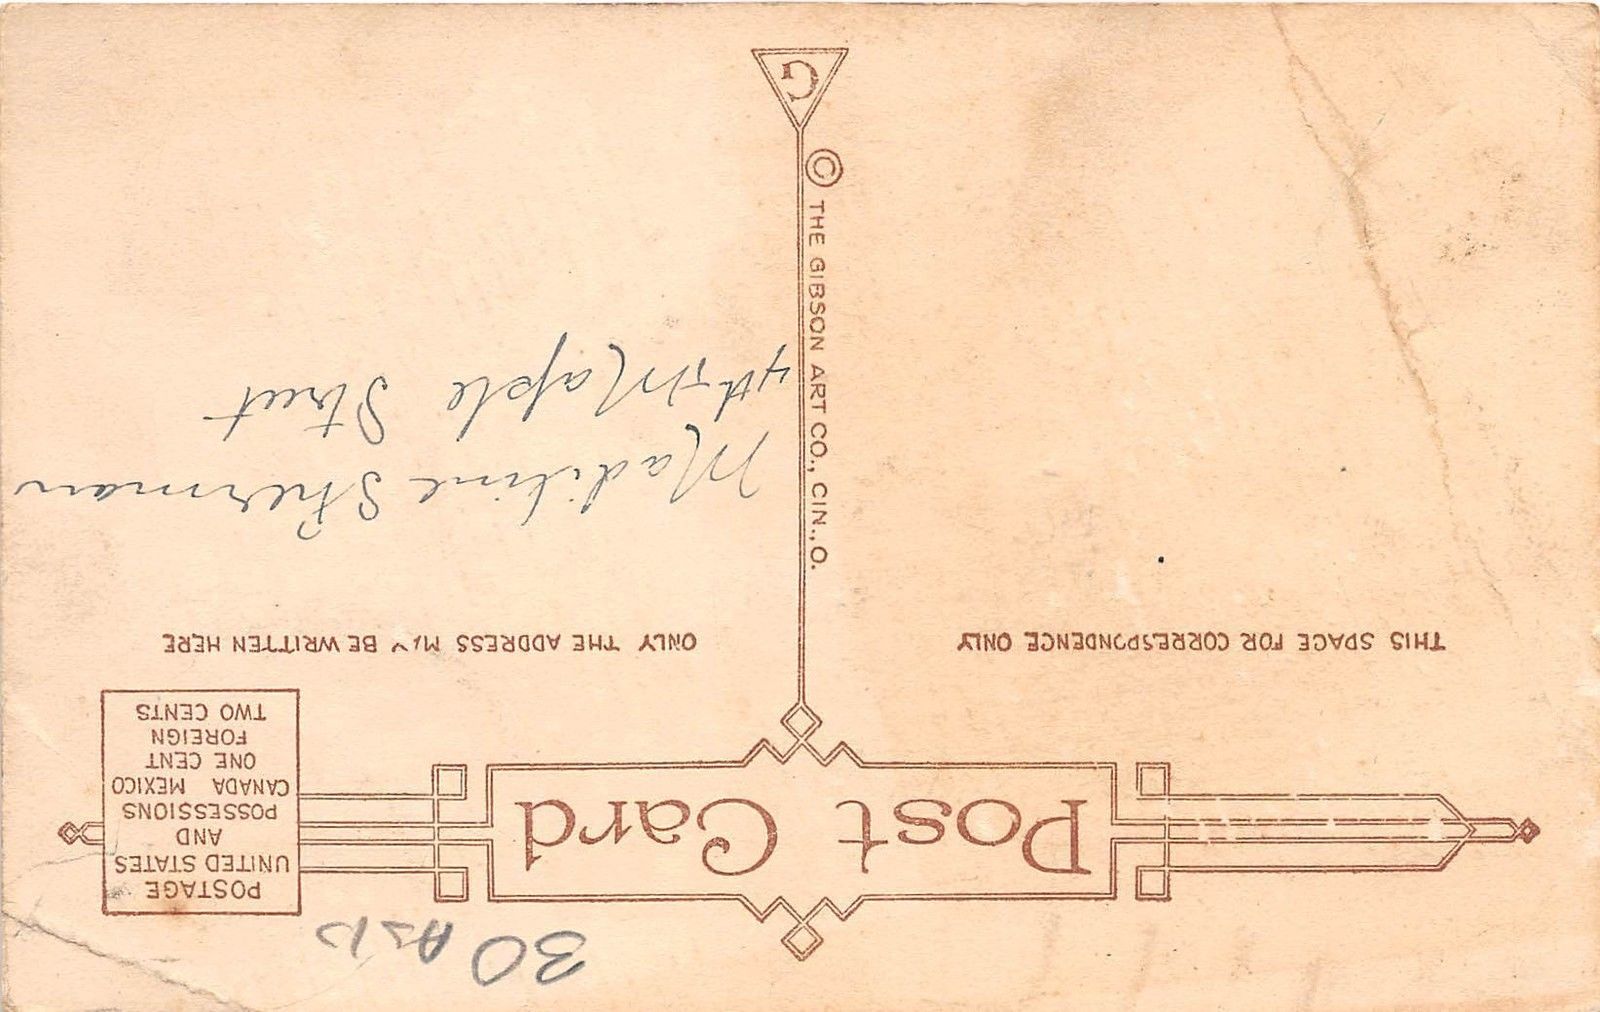 30 As Is
Post Card
POSTAGE
UNITED STATES
AND
POSSESSIONS
CANADA MEXICO
ONE CENT
FOREIGN
TWO CENTS
THIS SPACE FOR CORRESPONDENCE ONLY
ONLY THE ADDRESS MAY BE WRITTEN HERE
Madiline Sherman
4th & Maple Street
© THE GIBSON ART CO., CIN., O.
G